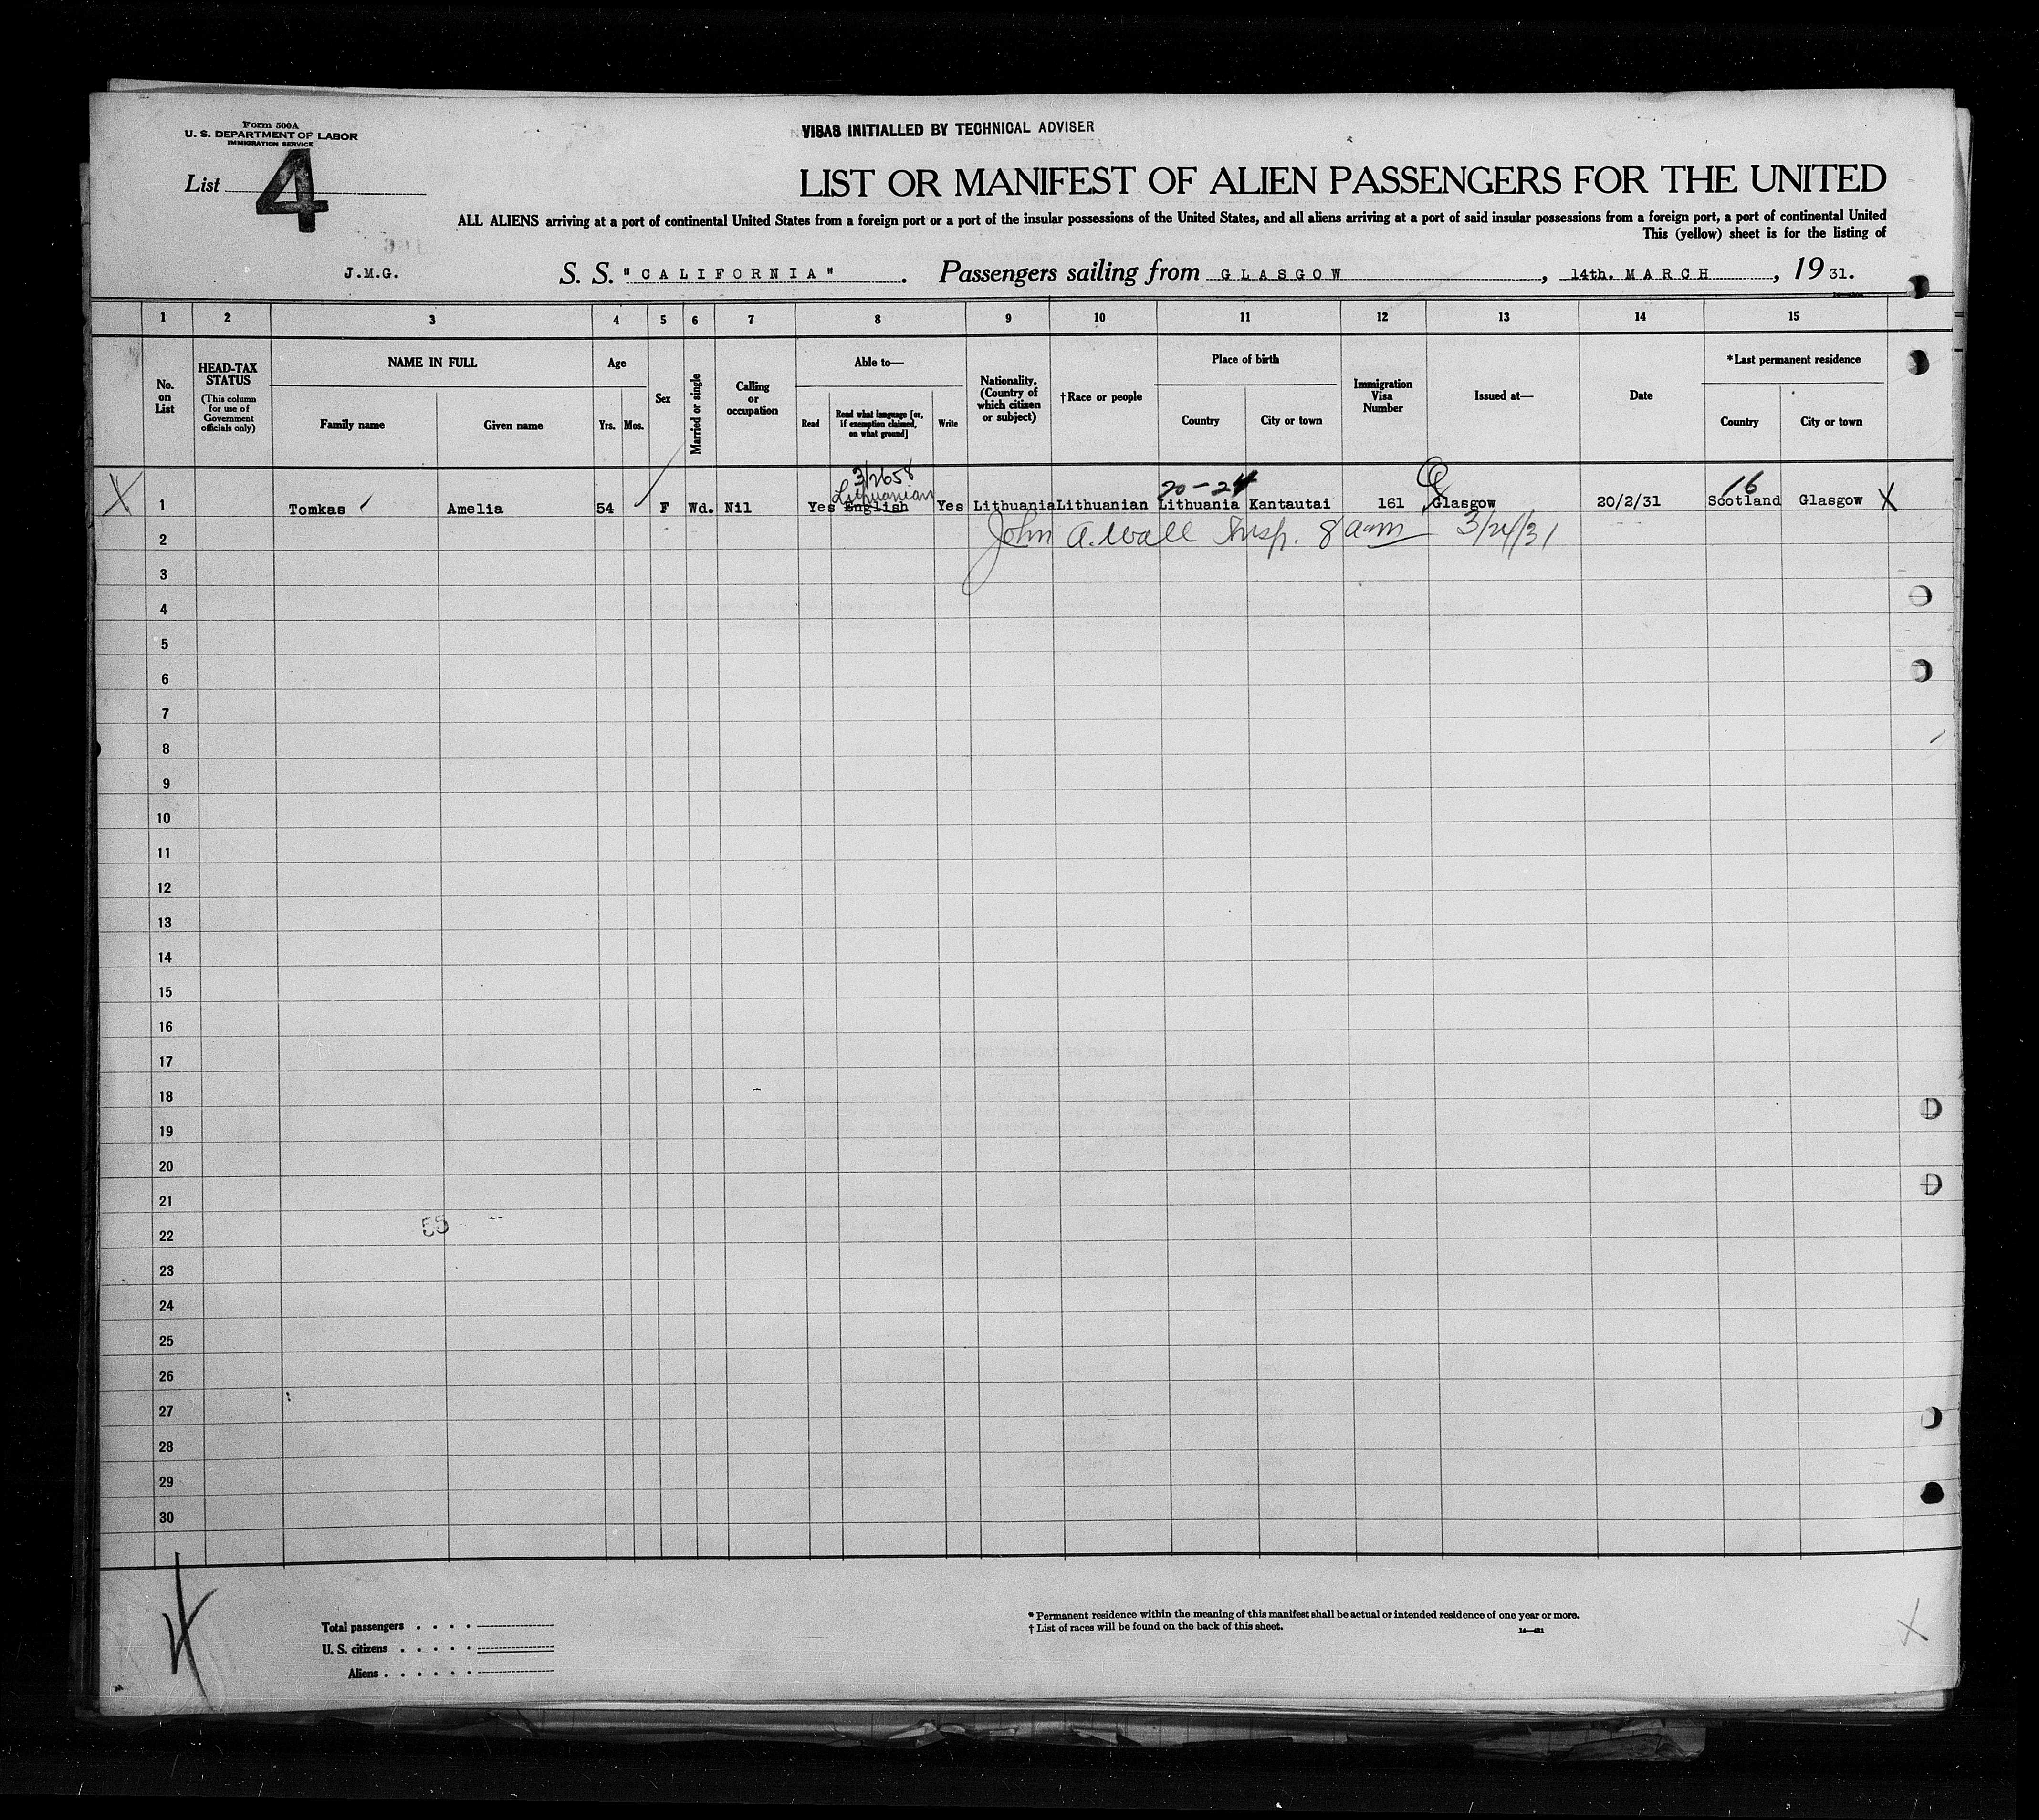 Form 500A
U. S. DEPARTMENT OF LABOR
IMMIGRATION SERVICE
VISAS INITIALLED BY TECHNICAL ADVISER
List 4
LIST OR MANIFEST OF ALIEN PASSENGERS FOR THE UNITED
ALL ALIENS arriving at a port of continental United States from a foreign port or a port of the insular possessions of the United States, and all aliens arriving at a port of said insular possessions from a foreign port, a port of continental United
This (yellow) sheet is for the listing of
J.M.G. S. S. "CALIFORNIA". Passengers sailing from GLASGOW, 14th. MARCH, 1931.
1 2 3 4 5 6 7 8 9 10 11 12 13 14 15
No. on List
HEAD-TAX STATUS
(This column for use of Government officials only)
NAME IN FULL
Family name
Given name
Age
Yrs.
Mos.
Sex
Married or single
Calling or occupation
Able to—
Read
Read what language [or, if exemption claimed, on what ground]
Write
Nationality. (Country of which citizen or subject)
†Race or people
Place of birth
Country
City or town
Immigration Visa Number
Issued at—
Date
*Last permanent residence
Country
City or town
3/2658
Lithuanian
20-24
16
X 1 Tomkas Amelia 54 F Wd. Nil Yes English Yes Lithuania Lithuanian Lithuania Kantautai 161 Glasgow 20/2/31 Scotland Glasgow X
2 John A. Wall Insp. 8 am 3/24/31
3
4
5
6
7
8
9
10
11
12
13
14
15
16
17
18
19
20
21
22
55
23
24
25
26
27
28
29
30
Total passengers
U. S. citizens
Aliens
* Permanent residence within the meaning of this manifest shall be actual or intended residence of one year or more.
† List of races will be found on the back of this sheet.
X